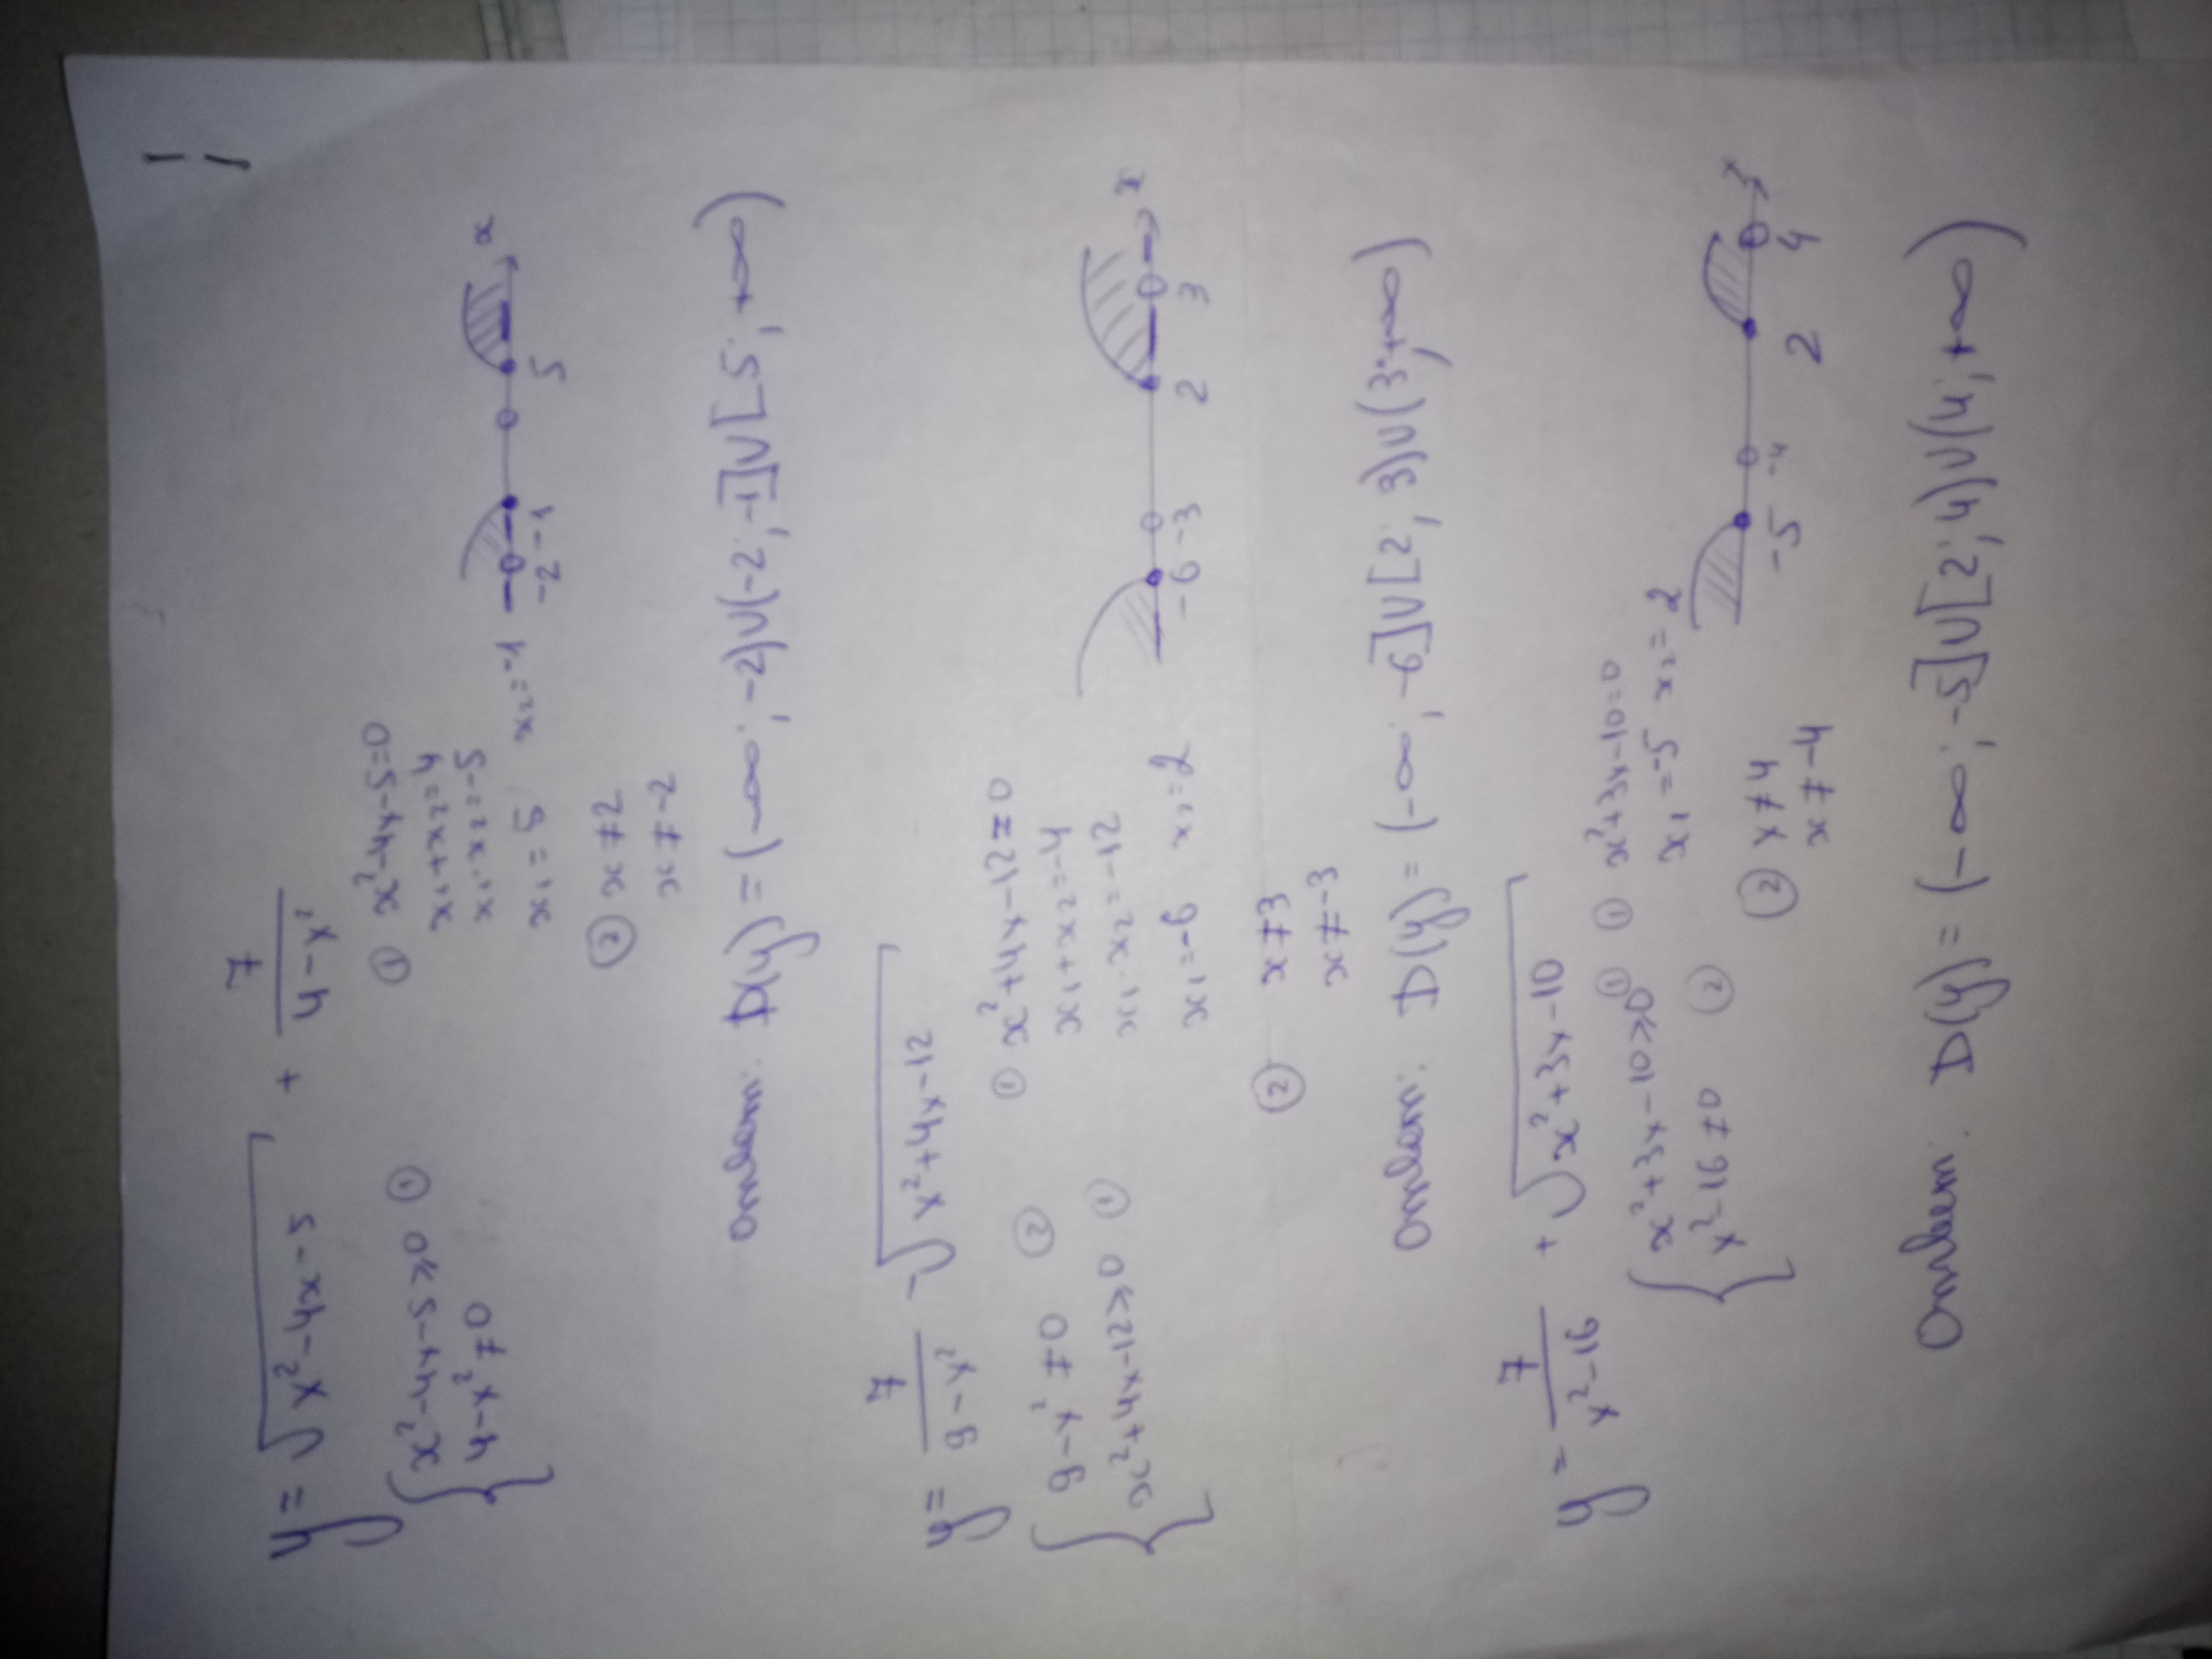 y = √(x² - 4x - 5) + 7/(4 - x²)
{ x² - 4x - 5 ⩾ 0 ①
4 - x² ≠ 0
① x² - 4x - 5 = 0
x₁ + x₂ = 4
x₁ · x₂ = -5
x₁ = 5 x₂ = -1
-2 -1 5 x
② x ≠ 2
x ≠ -2
Ответ: D(y) = (-∞; -2)∪(-2; -1]∪[5; +∞)
y = 7/(9 - x²) - √(x² + 4x - 12)
{ 9 - x² ≠ 0 ②
x² + 4x - 12 ⩾ 0 ①
① x² + 4x - 12 = 0
x₁ + x₂ = -4
x₁ · x₂ = -12
x₁ = -6 x₂ = 2
-6 -3 2 3 x
② x ≠ 3
x ≠ -3
Ответ: D(y) = (-∞; -6]∪[2; 3)∪(3; +∞)
y = 7/(x² - 16) + √(x² + 3x - 10)
{ x² + 3x - 10 ⩾ 0 ①
x² - 16 ≠ 0 ②
① x² + 3x - 10 = 0
x₁ = -5 x₂ = 2
② x ≠ 4
x ≠ -4
-5 -4 2 4 x
Ответ: D(y) = (-∞; -5]∪[2; 4)∪(4; +∞)